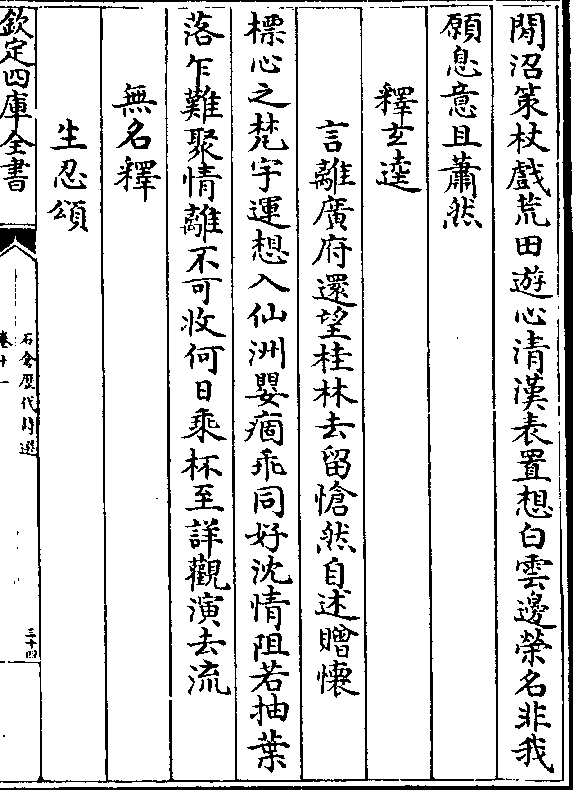 閒沼策杖戲荒田遊心清漢表置想白雲邊榮名非我
願息意且蕭然
釋玄逵
言離廣府還望桂林去留愴然自述贈懷
標心之梵宇運想入仙洲嬰痼乖同好沈情阻若抽葉
落乍難聚情離不可收何日乘杯至詳觀演去流
無名釋
生忍頌
欽定四庫全書
石倉歷代詩選
卷十一
三十四